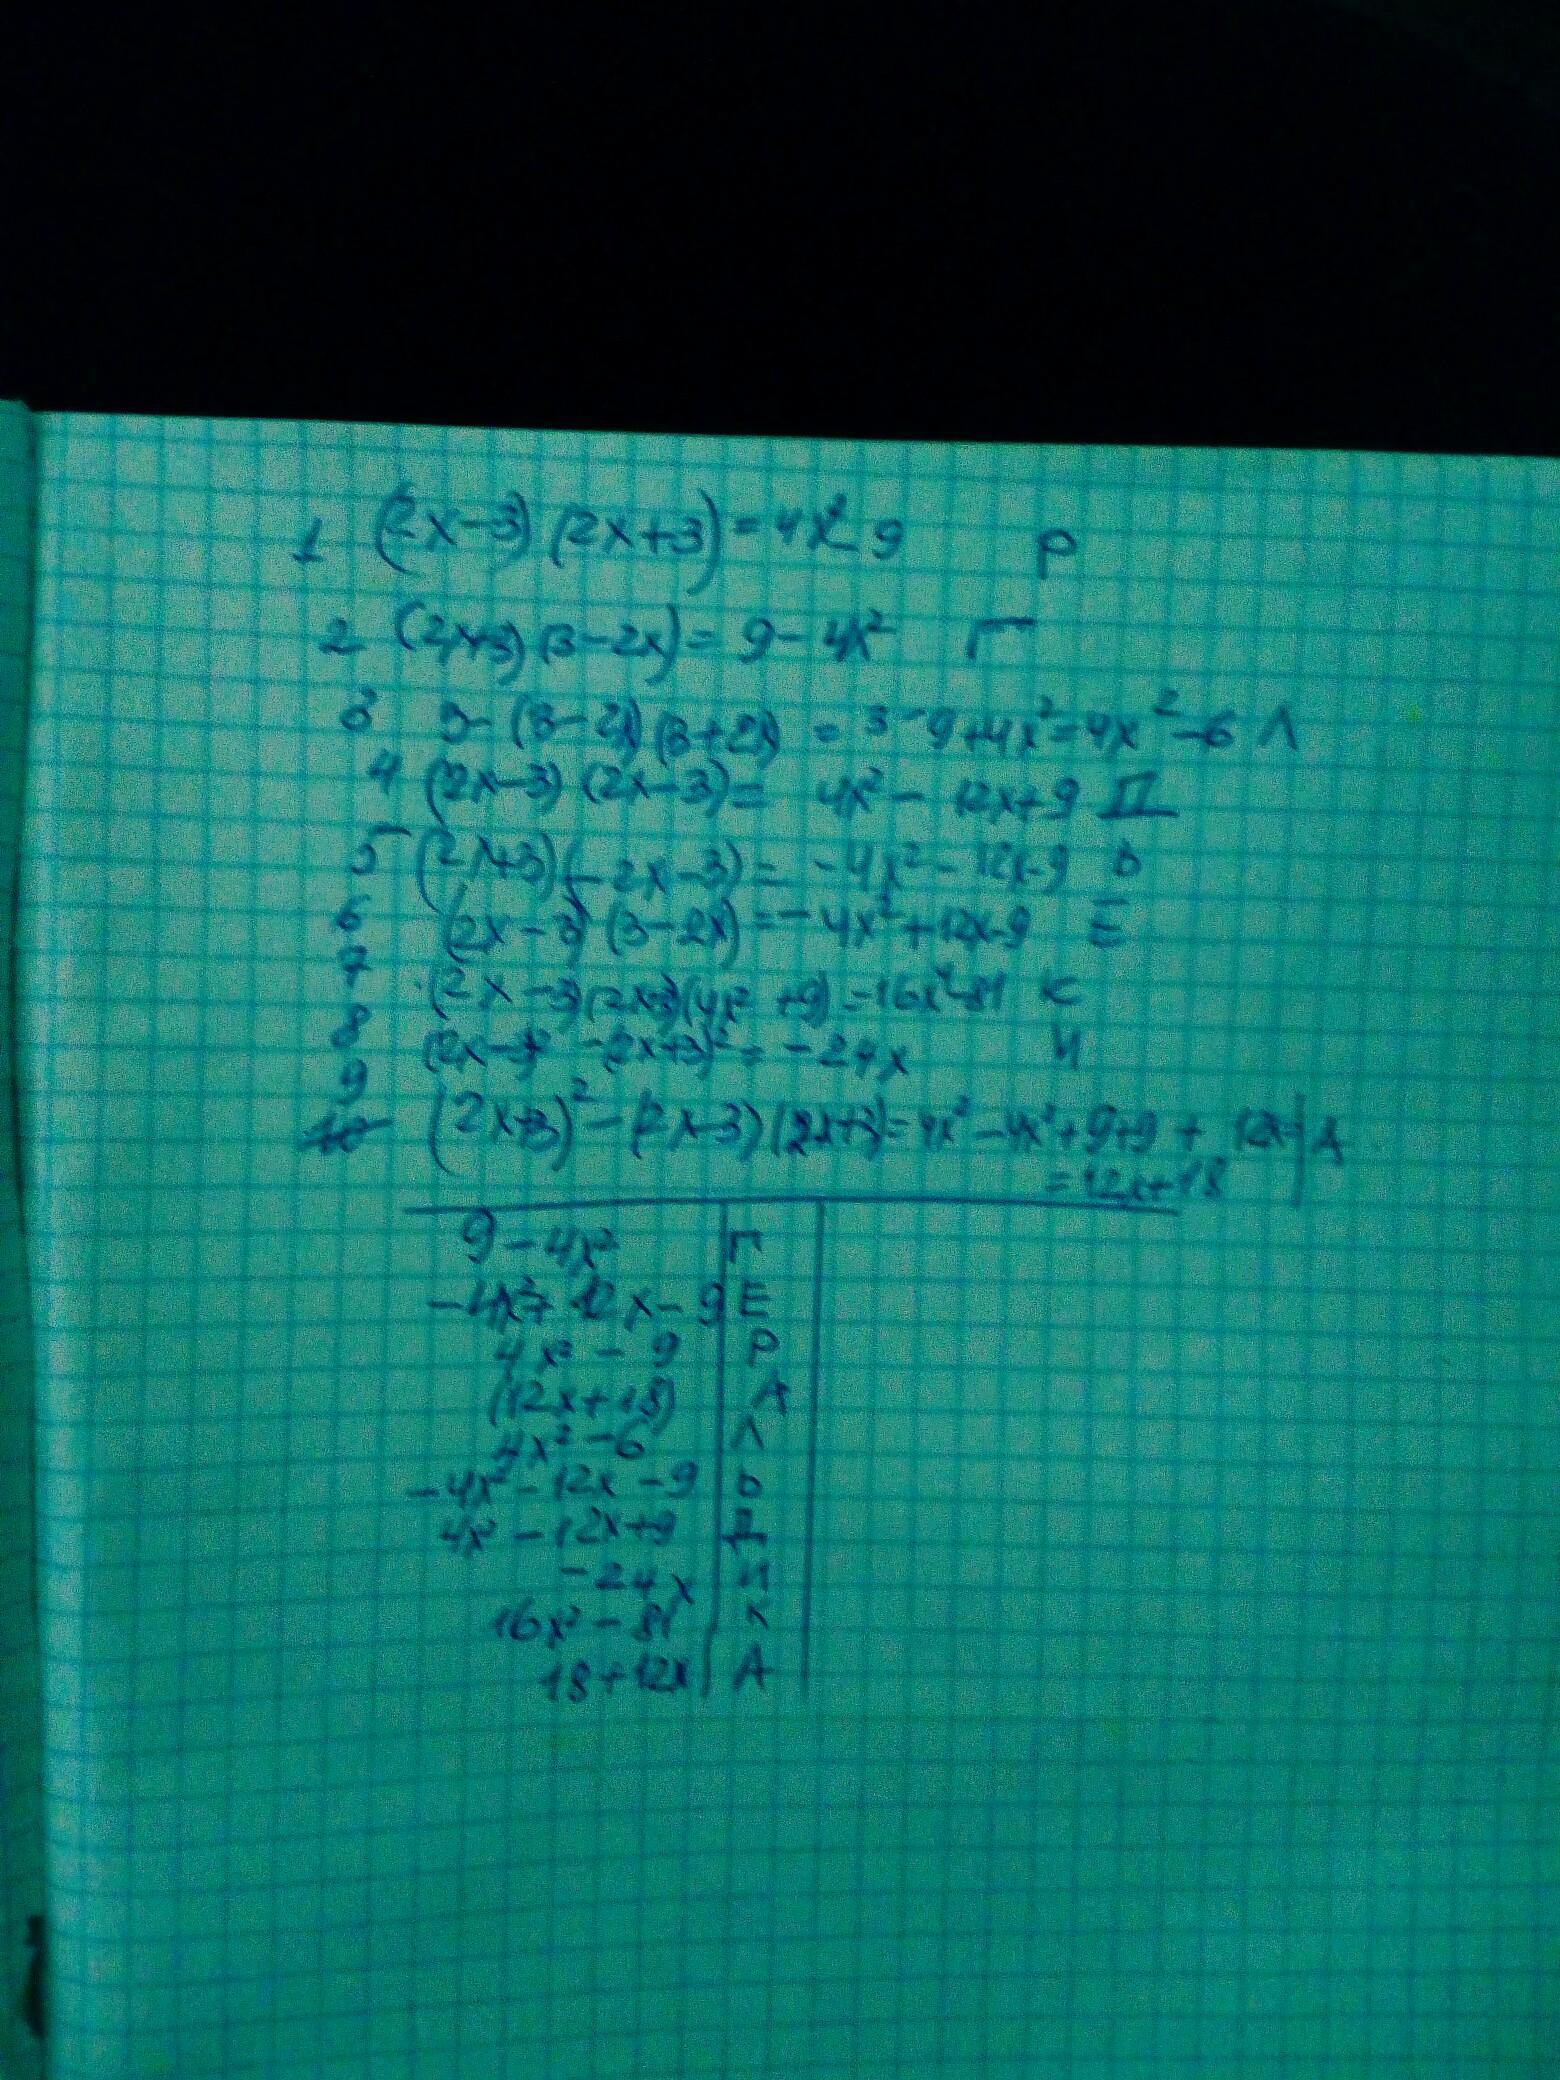 1 (2x-3)(2x+3)=4x²-9 Р
2 (2x+3)(3-2x)=9-4x² Г
3 3-(3-2x)(3+2x)=3-9+4x²=4x²-6 Л
4 (2x-3)(2x-3)=4x²-12x+9 Д
5 (2x+3)(-2x-3)=-4x²-12x-9 Ь
6 (2x-3)(3-2x)=-4x²+12x-9 Е
7 (2x-3)(2x+3)(4x²+9)=16x⁴-81 К
8 (2x-3)²-(2x+3)²=-24x И
9
10 (2x+3)²-(2x-3)(2x+3)=4x²-4x²+9+9+12x= А
=12x+18
9-4x² Г
-4x²+12x-9 Е
4x²-9 Р
(12x+18) А
4x²-6 Л
-4x²-12x-9 Ь
4x²-12x+9 Д
-24x И
16x²-81 К
18+12x А